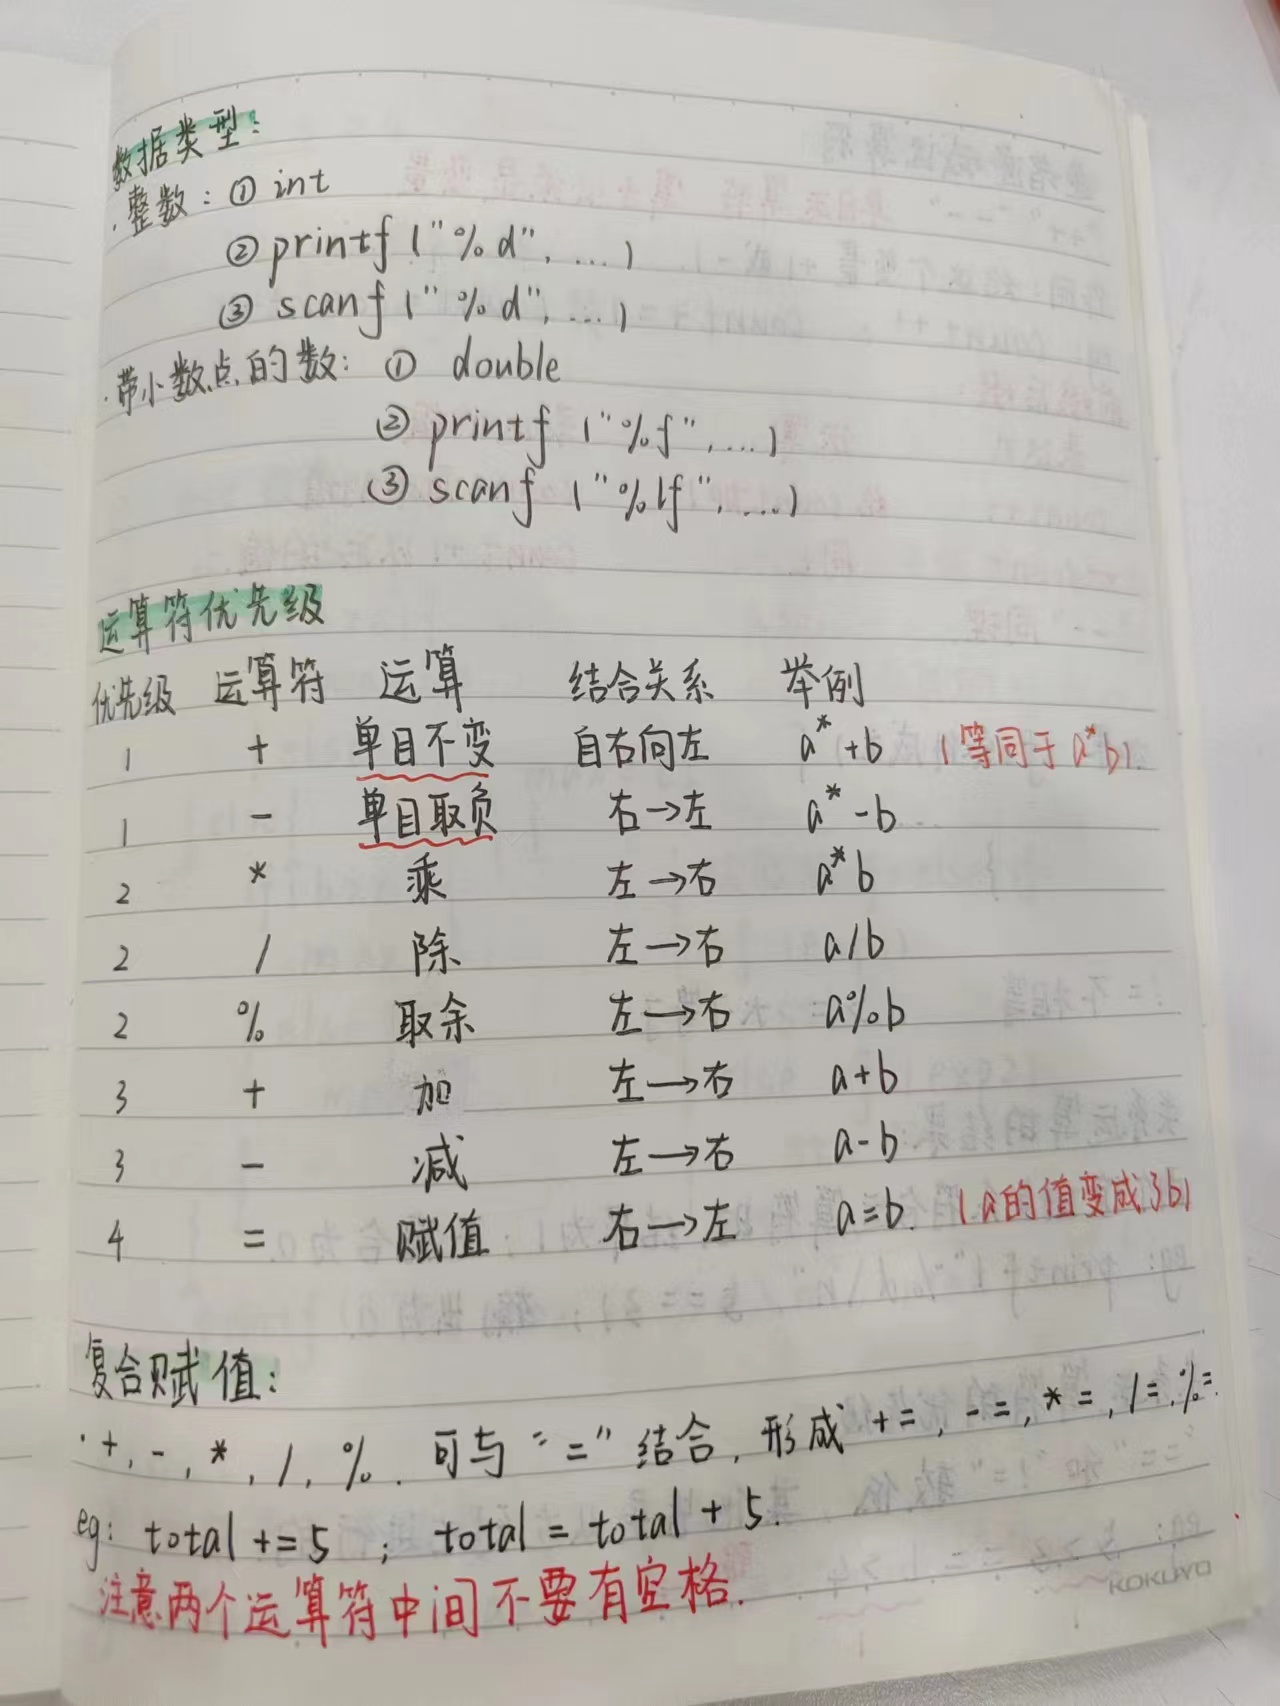 数据类型:
·整数: ① int
② printf ("%d", ...)
③ scanf ("%d", ...)
·带小数点的数: ① double
② printf ("%f", ...)
③ scanf ("%lf", ...)
运算符优先级
优先级 运算符 运算 结合关系 举例
1 + 单目不变 自右向左 a*+b (等同于a*b)
1 - 单目取负 右→左 a*-b
2 * 乘 左→右 a*b
2 / 除 左→右 a/b
2 % 取余 左→右 a%b
3 + 加 左→右 a+b
3 - 减 左→右 a-b
4 = 赋值 右→左 a=b. (a的值变成了b)
复合赋值:
·+, -, *, /, %. 可与"="结合, 形成 +=, -=, *=, /=, %=.
eg: total += 5 ; total = total + 5.
注意两个运算符中间不要有空格.
KOKUYO